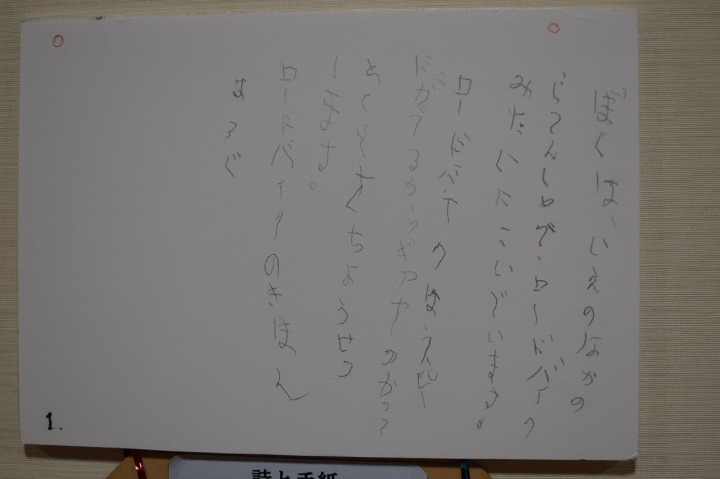 ぼくは、いえのなかの
じてんしゃで、ロードバイク
みたいにこいでいます。
ロードバイクは、スピー
ドがでるから、ギアつかって
そくちょうせつ
します。
ロードバイクのきほん
1.
詩と手紙